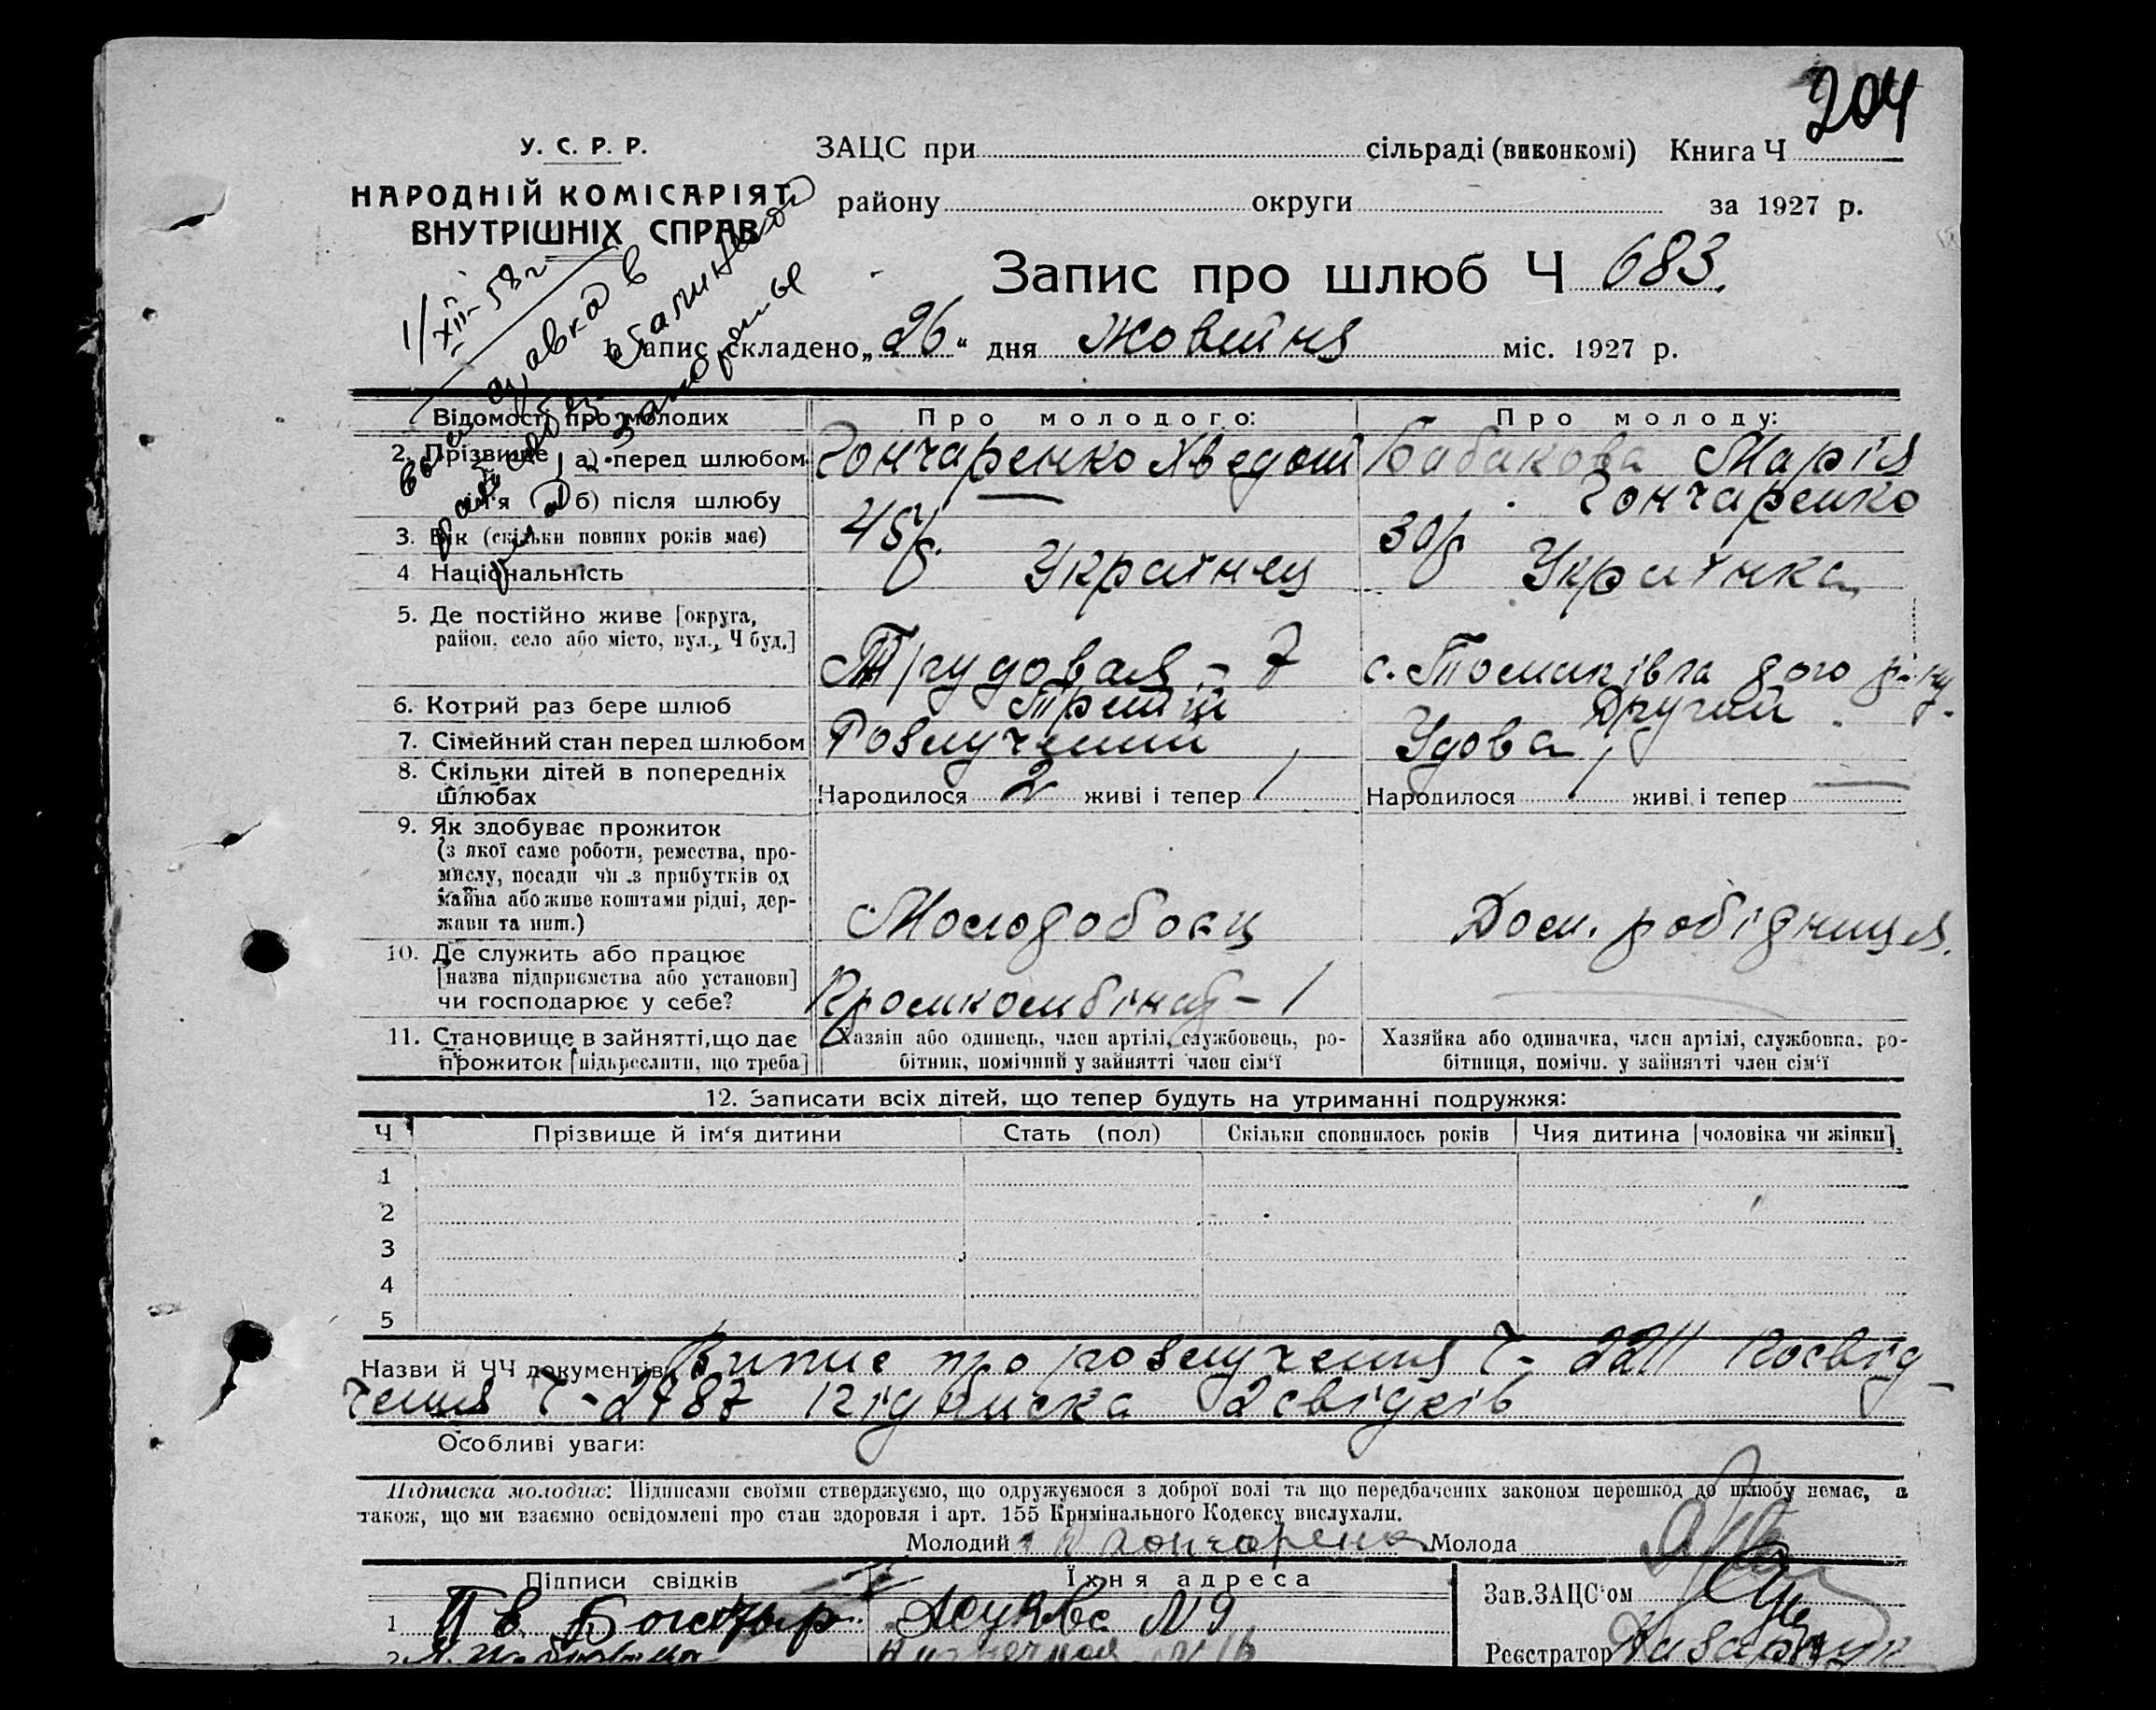 204
У. С. Р. Р.
НАРОДНІЙ КОМІСАРІЯТ
ВНУТРІШНІХ СПРАВ
ЗАЦС при сільраді (виконкомі) Книга Ч
району округи за 1927 р.
Запис про шлюб Ч 683.
1/XII-58 г
1. Запис складено „26“ дня Жовтня міс. 1927 р.
Відомості про молодих
Про молодого:
Про молоду:
2. Прізвище й ім'я а) перед шлюбом
Гончаренко Хведот
Бабакова Марія
б) після шлюбу
Гончаренко
3. Вік (скільки повних років має)
45 р.
30 р
4 Національність
Українец
Українка
5. Де постійно живе [округа,
район, село або місто, вул., Ч буд.]
Трудовая - 7
с. Томаківка
6. Котрий раз бере шлюб
Третій
Другий
7. Сімейний стан перед шлюбом
Розлучений
Удова
8. Скільки дітей в попередніх
шлюбах
Народилося 2 живі і тепер 1
Народилося 1 живі і тепер —
9. Як здобуває прожиток
(з якої саме роботи, ремества, про-
мислу, посади чи з прибутків од
майна або живе коштами рідні, дер-
жави та инш.)
Молодобоец
Дом. робідниця.
10. Де служить або працює
[назва підприємства або установи]
чи господарює у себе?
Промкомбінат - 1
11. Становище в зайнятті, що дає
прожиток [підкреслити, що треба]
Хазяін або одинець, член артілі, службовець, ро-
бітник, помічний у зайнятті член сім'ї
Хазяйка або одиначка, член артілі, службовка, ро-
бітниця, помічн. у зайнятті член сім'ї
12. Записати всіх дітей, що тепер будуть на утриманні подружжя:
Ч
Прізвище й ім'я дитини
Стать (пол)
Скільки сповнилось років
Чия дитина [чоловіка чи жінки]
1
2
3
4
5
Назви й ЧЧ документів: Випис про розлучення Ч- 2211 Посвід-
чення Ч-2787 Підписка 2 свідків
Особливі уваги:
Підписка молодих: Підписами своїми стверджуємо, що одружуємося з доброї волі та що передбачених законом перешкод до шлюбу немає, а
також, що ми взаємно освідомлені про стан здоровля і арт. 155 Кримінального Кодексу вислухали.
Молодий Гончаренко Молода
Підписи свідків
Їхня адреса
Зав.ЗАЦС'ом
1
N 9
2
Реєстратор